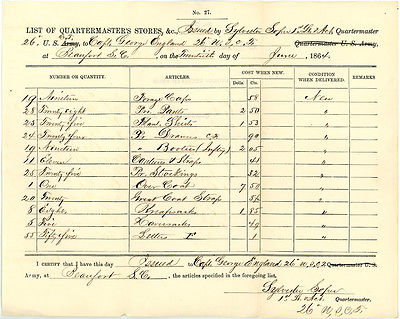 No. 27.
LIST OF QUARTERMASTER'S STORES, &c. Issued by Sylvester Soper 1st Lt & Act Quartermaster
26" U.S. Army, to Capt George England 26" U.S.C.T. Quartermaster U.S. Army,
at Beaufort S.C., on the day of June, 1864
NUMBER OR QUANTITY. ARTICLES. COST WHEN NEW. CONDITION WHEN DELIVERED. REMARKS
Dolls. Cts.
19 Nineteen Forage Caps 58 New
28 Twenty eight Pr. Pants 2 50 "
25 Twenty five Flanl Shirts 1 53 "
Drawers 90 "
19 Nineteen " Bootees 2 05 "
11 Eleven & Straps 41 "
25 Twenty five Pr. Stockings 32 "
1 One Over Coat 7 50 "
20 Twenty Great Coat Straps "
8 Eight Knapsacks 1 85 "
5 Five Haversacks "
55 Fifty five Letters 1 "
I CERTIFY that I have this day Issued to Capt George England 26" Quartermaster U.S.
Army, at Beaufort S.C., the articles specified in the foregoing list.
Sylvester Soper
1st Lt & Act. Quartermaster.
26"